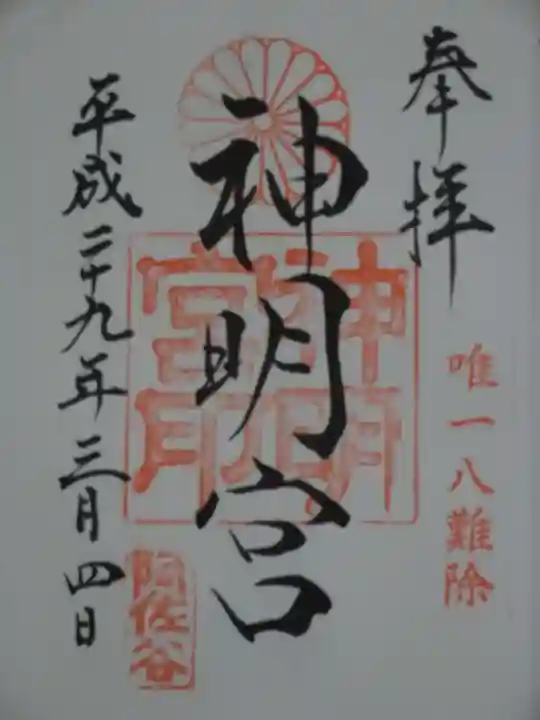 奉拝
唯一八難除
神明宮
神明宮印
平成二十九年三月四日
阿佐谷